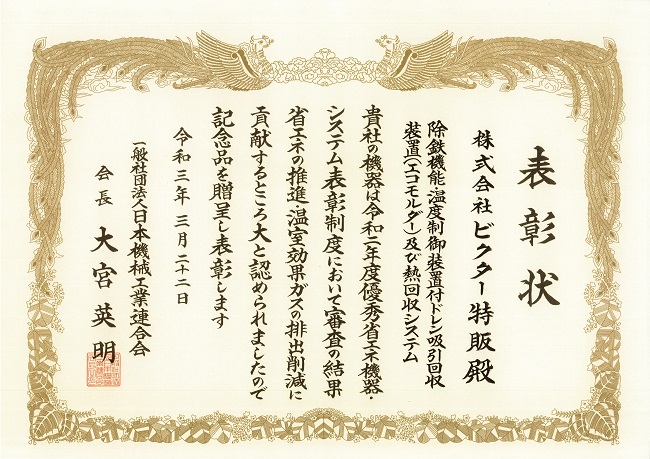 表彰状
株式会社ビクター特販殿
除鉄機能・温度制御装置付ドレン吸引回収
装置(エコモルダー)及び熱回収システム
貴社の機器は令和二年度優秀省エネ機器・
システム表彰制度において審査の結果
省エネの推進・温室効果ガスの排出削減に
貢献するところ大と認められましたので
記念品を贈呈し表彰します
令和三年三月二十二日
一般社団法人日本機械工業連合会
会長 大宮英明